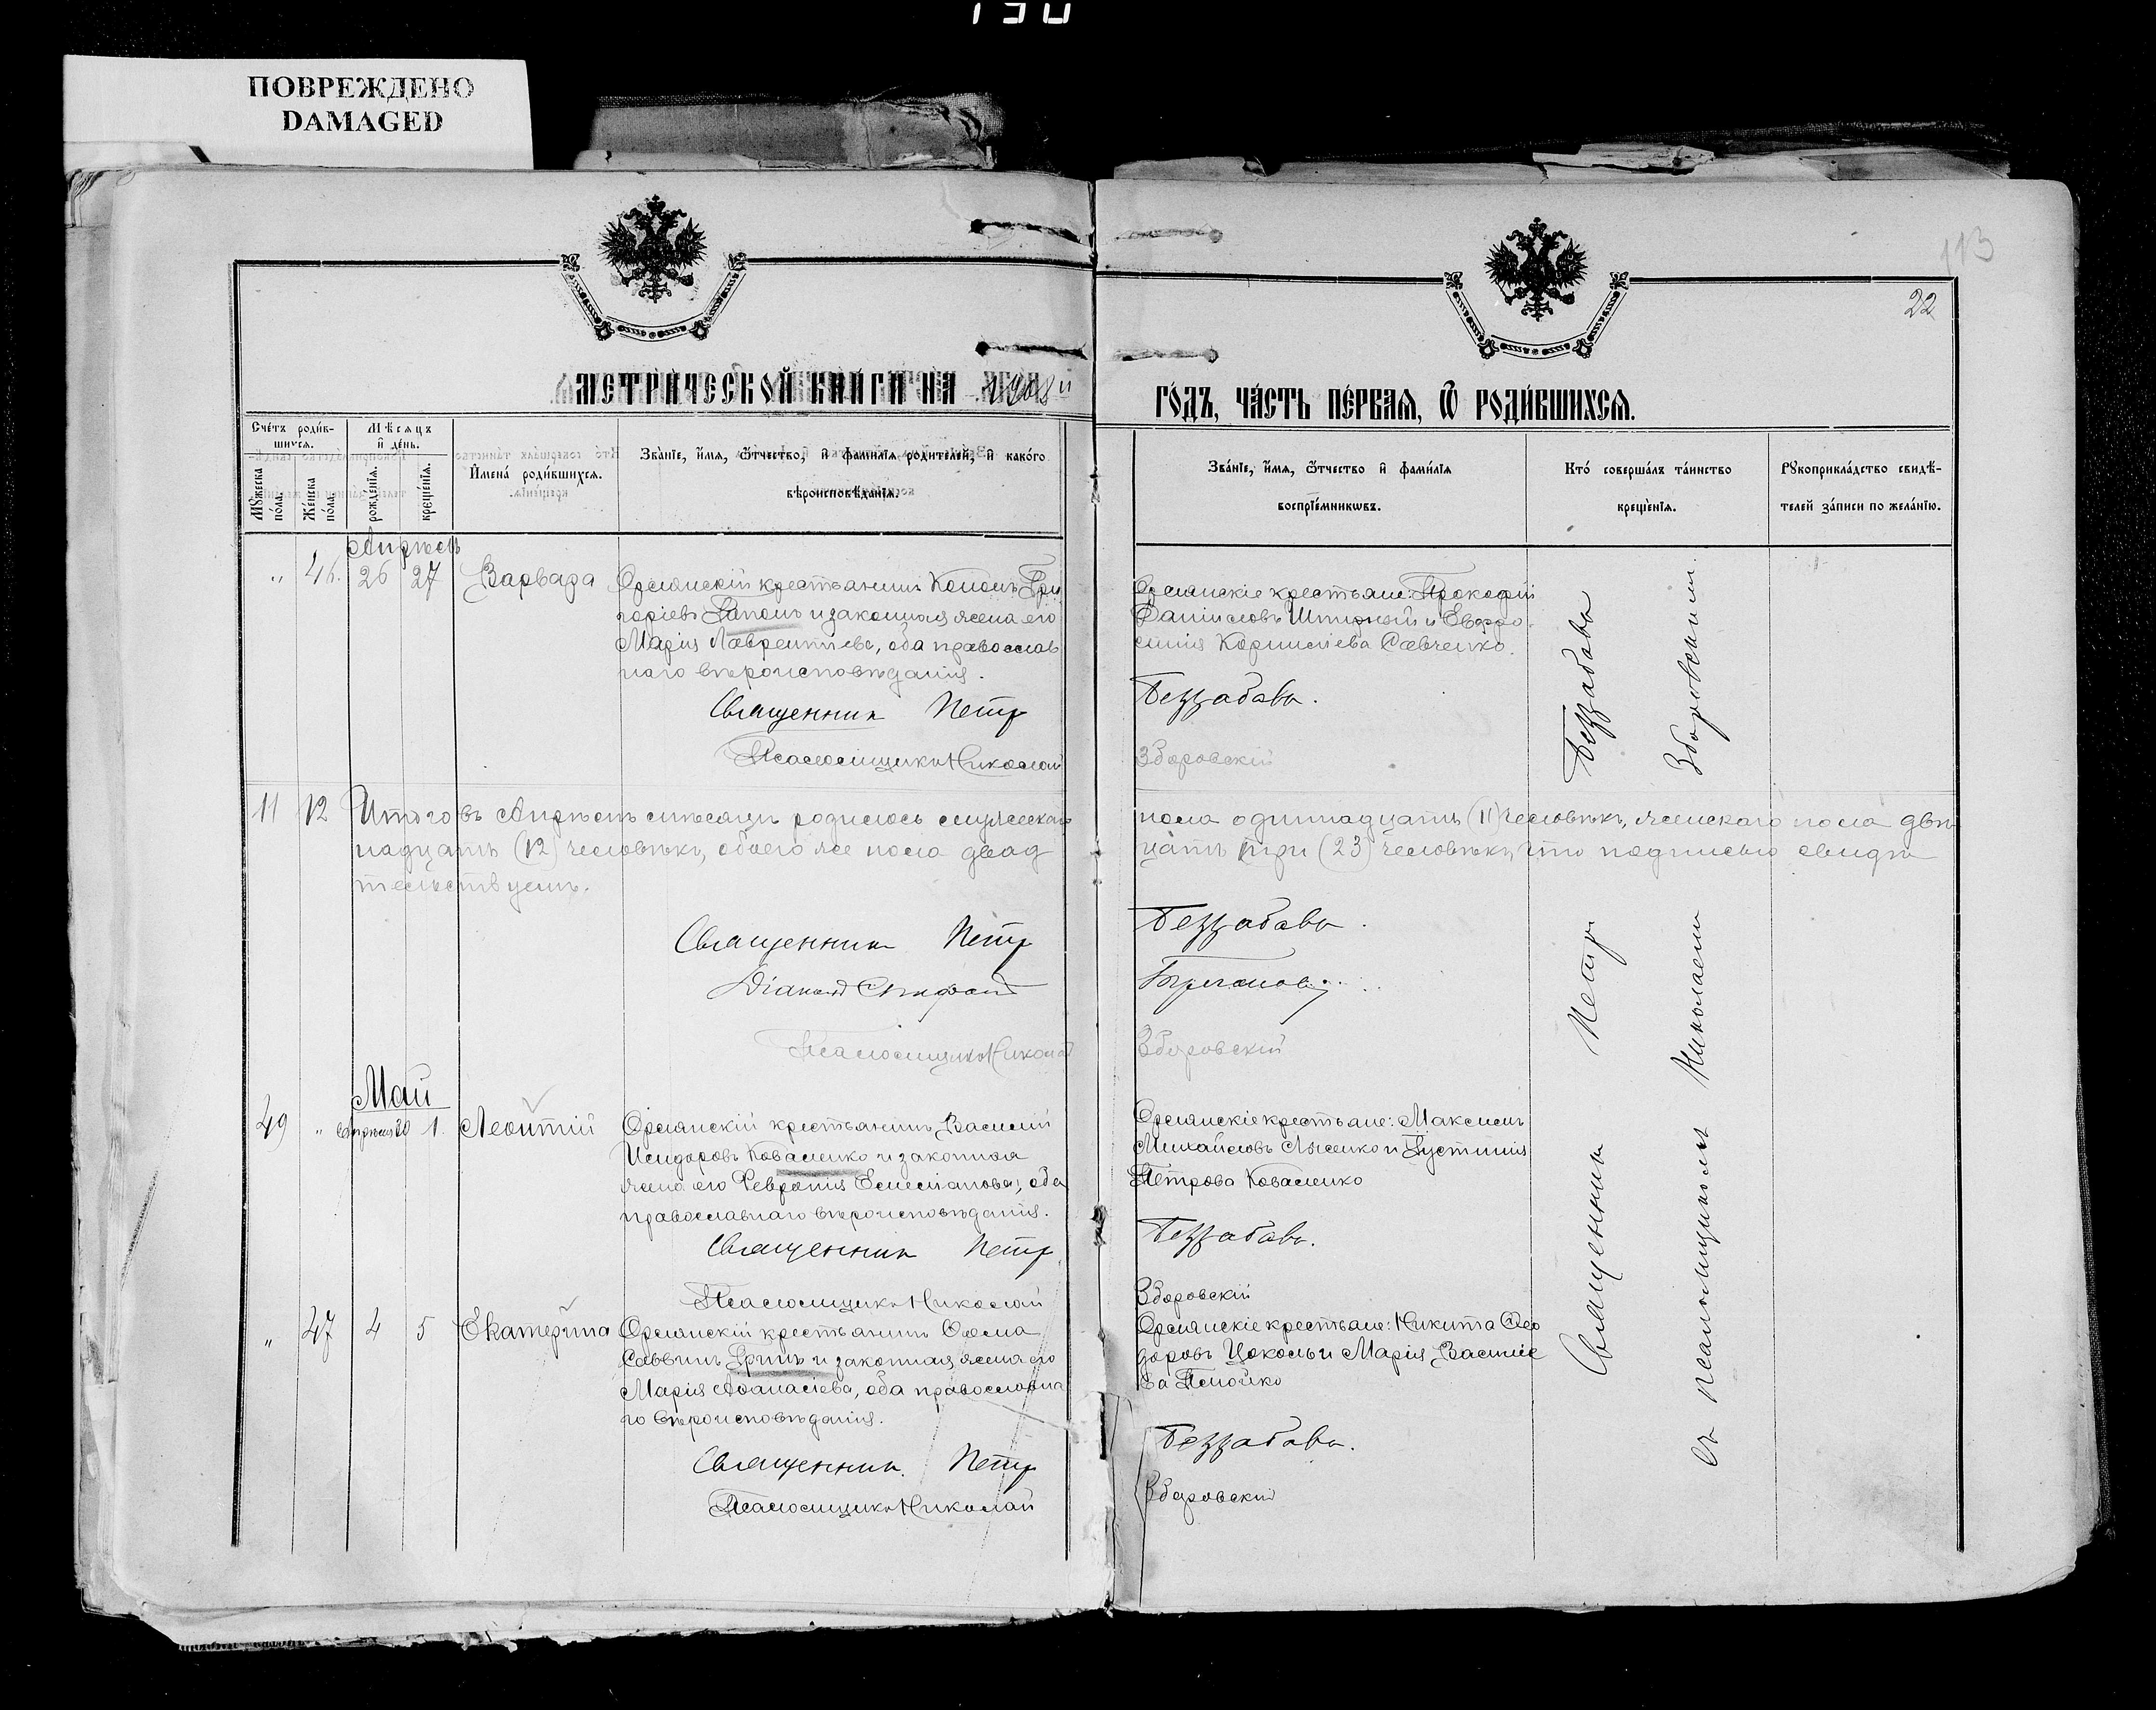 130
ПОВРЕЖДЕНО
DAMAGED
113
22
МЕТРИ́ЧЕСКОЙ КНИ́ГИ НА 1908й
ГО́ДЪ, ЧА́СТЬ ПЕ́РВАЯ, Ѡ РОДИ́ВШИХСЯ.
Сче́тъ роди́в-
шихся.
Мѣ́сяцъ
и҆ де́нь.
Мꙋ́жеска
по́ла.
Же́нска
по́ла.
рожде́нїя.
креще́нїя.
И҆мена̀ роди́вшихся.
Зва́нїе, и҆́мя, ѻ҆́тчество, и҆ фами́лїя роди́телей, и҆ како́го
вѣроисповѣ́данїя.
Зва́нїе, и҆́мя, ѻ҆́тчество и҆ фами́лїя
воспрїе́мникѡвъ.
Кто̀ соверша́лъ та́инство
креще́нїя.
Рꙋкоприкла́дство свидѣ́-
телей за́писи по жела́нїю.
Апрѣль
„ 46. 26 27 Варвара
Орлянскій крестьянинъ Кононъ Гри
горіевъ и законная жена его
Марія Лаврентіева, оба православ
наго вѣроисповѣданія.
Священник Петр
Псаломщикъ Николай
Орлянскіе крестьяне: Прокофій
Даніиловъ и Евфро
синія Корниліева Савченко.
Беззабава.
Зборовскій
11 12 Итого въ Апрѣлѣ мѣсяцѣ родилось мужскаго
пола одиннадцать (11) человѣкъ, женскаго пола двѣ
надцать (12) человѣкъ, обоего же пола двад
цать три (23) человѣкъ, что подписью свидѣ
тельствуемъ.
Священник Петр
Беззабава.
Діаконъ
Псаломщикъ Николай
Зборовскій
Май
49 „ Апрѣля 30 1. Леонтій
Орлянскій крестьянинъ Василій
Исидоровъ Коваленко и законная
жена его Феврония Емеліанова, оба
православнаго вѣроисповѣданія.
Священник Петр
Псаломщикъ Николай
Орлянскіе крестьяне: Максимъ
Михайловъ Лысенко и Іустинія
Петрова Коваленко
Беззабава.
Зборовскій
„ 47 4 5 Екатерина
Орлянскій крестьянинъ Ѳома
Саввинъ и законная жена его
Марія Аѳанасіева, оба православна
го вѣроисповѣданія.
Священник. Петр
Псаломщикъ Николай
Орлянскіе крестьяне: Никита Ѳео
доровъ Цоколь и Марія Василіе
ва
Беззабава.
Зборовскій
Священник Петр Беззабава
съ псаломщикомъ Николаем Зборовским.